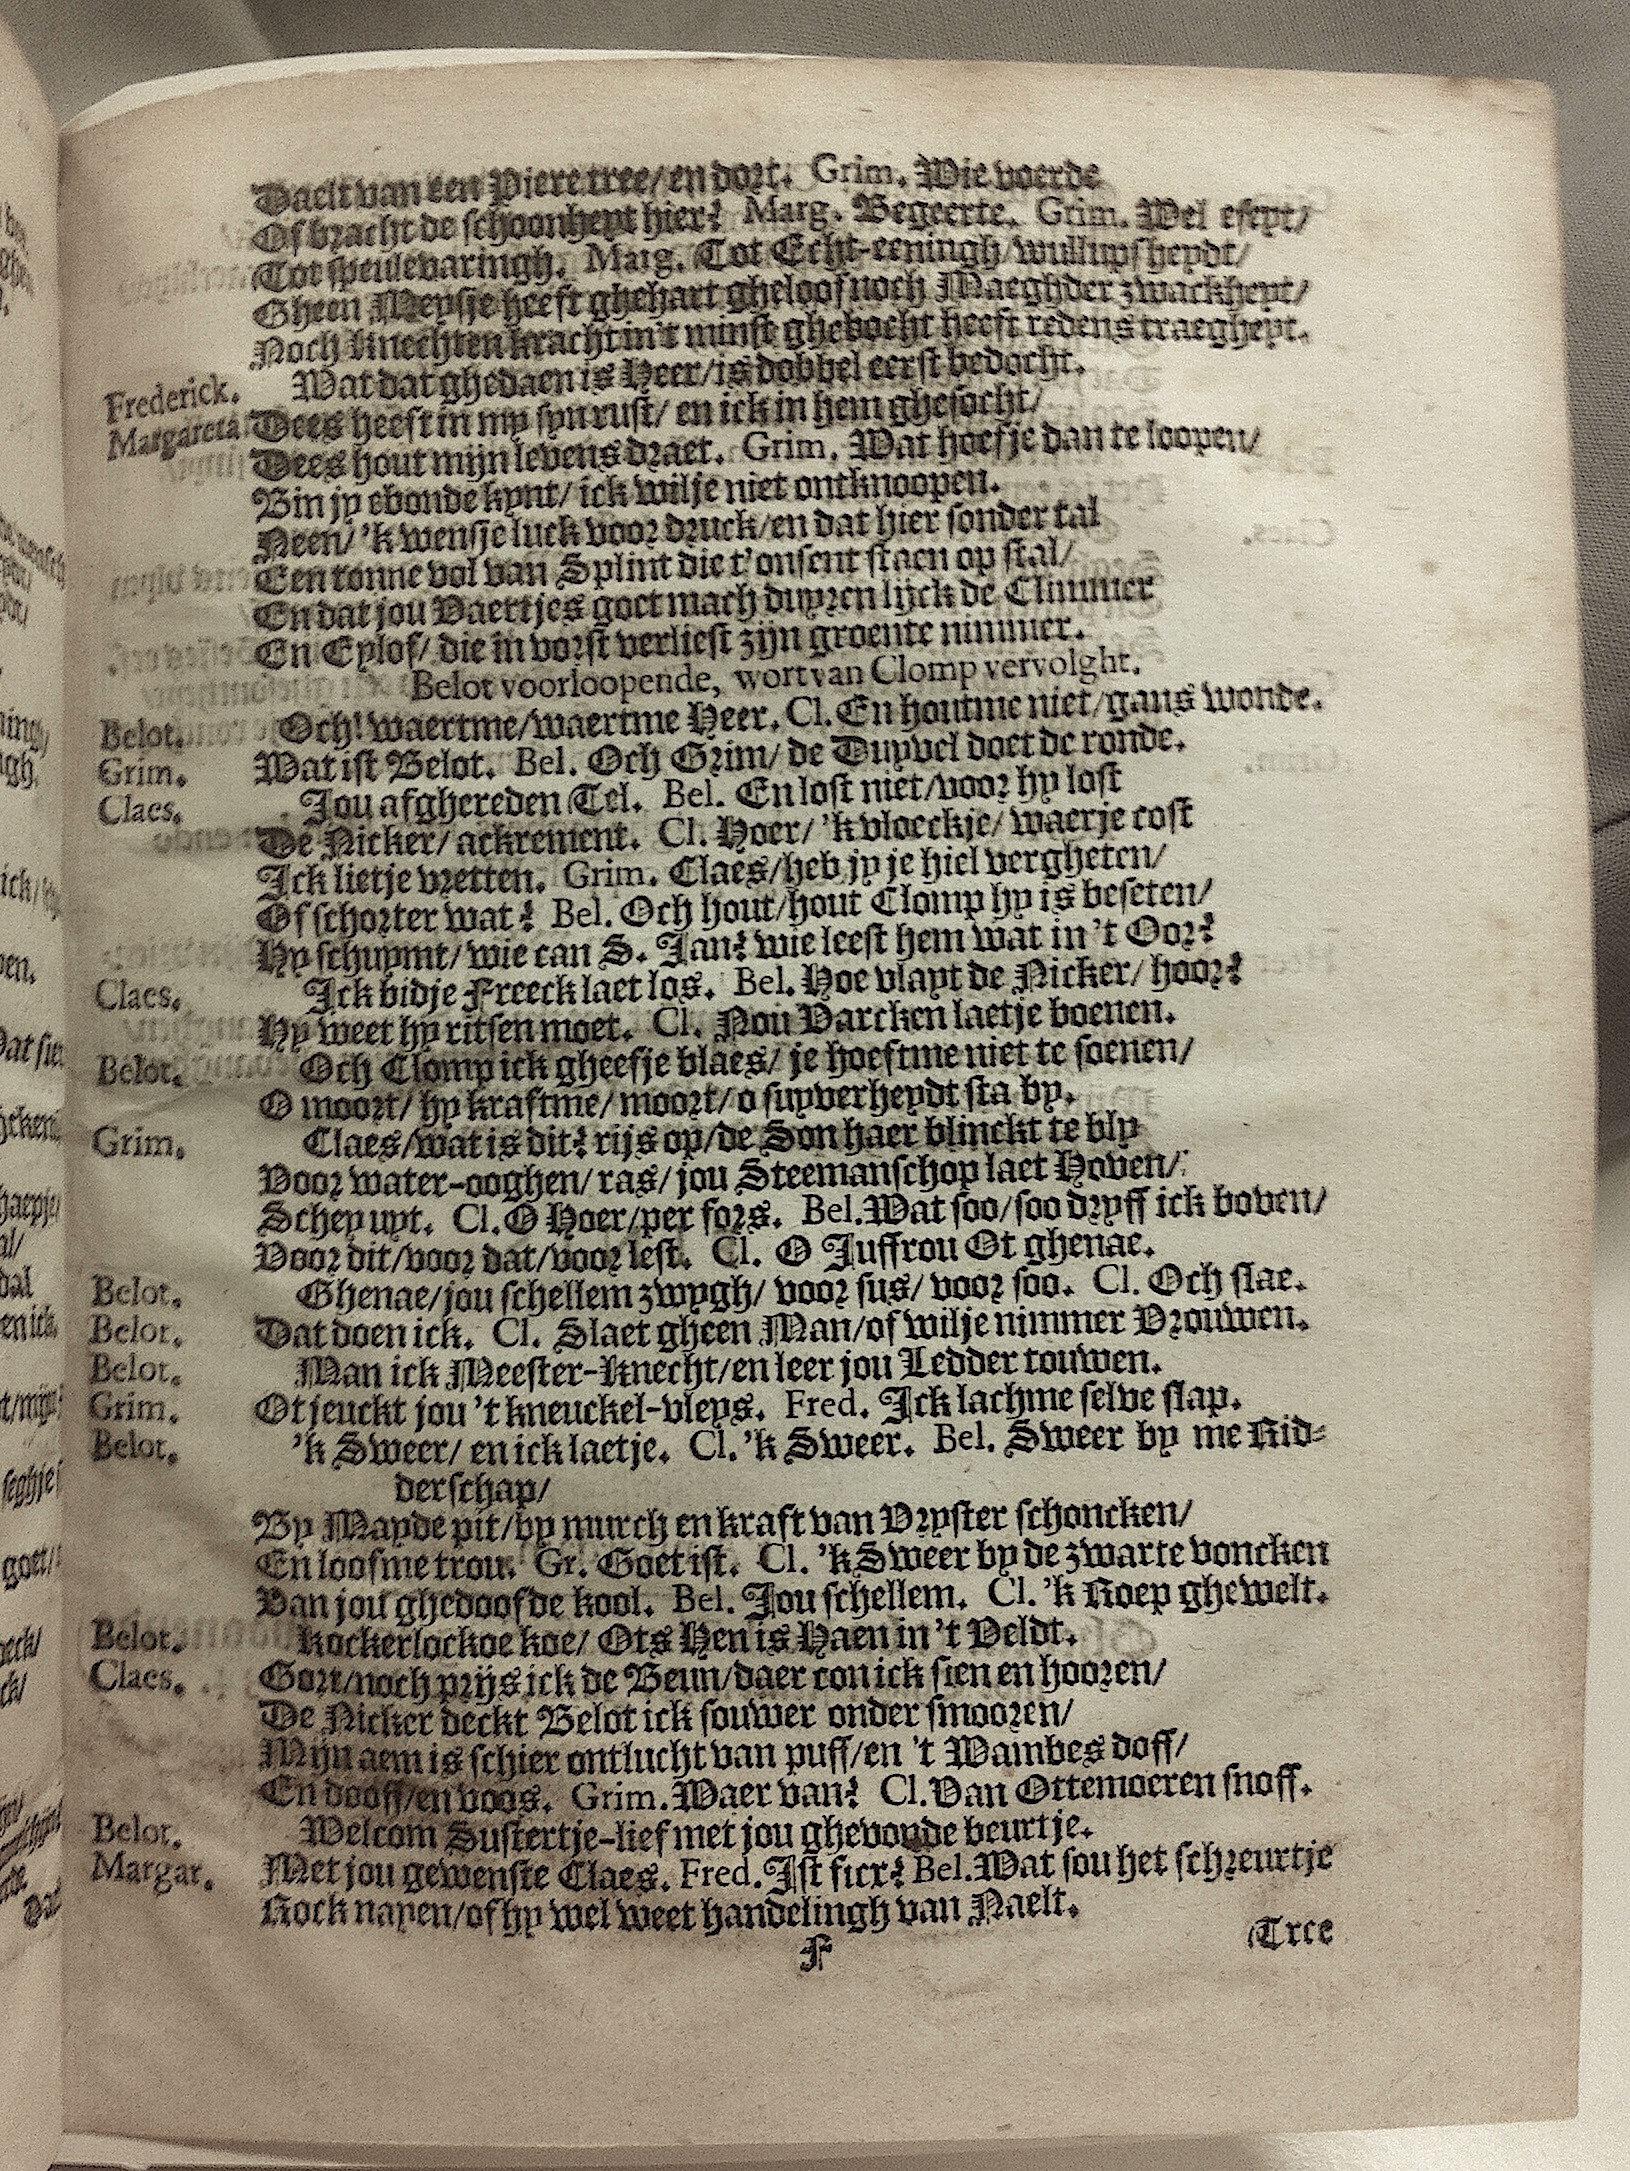 Daelt van een Piere tree/ en dort. Grim. Wie voerde
Of bracht de schoonheyt hier? Marg. Begeerte. Grim. Wel eseyt/
Tot speulevaringh. Marg. Tot Echt-eeningh/ wullupsheydt/
Gheen Meysje heeft ghehart gheloof noch Maeghder zwackheyt/
Noch knechten kracht in't minst ghebocht heeft redens traegheyt.
Frederick. Wat dat ghedaen is Heer/ is dobbel eerst bedocht.
Margareta. Dees heeft in my syn rust/ en ick in hem ghesocht/
Dees hout mijn levens draet. Grim. Wat hoefje dan te loopen/
Bin jy ebonde kynt/ ick wilje niet ontknoopen.
Neen/ 'k wensje luck voor druck/ en dat hier sonder tal
Een tonne vol van Splint die t'onsent staen op stal/
En dat jou Vaertjes goet mach duyren lijck de Climmer
En Eylof/ die in vorst verliest zijn groente nimmer.
Belot voorloopende, wort van Clomp vervolght.
Belot. Och! waertme/ waertme Heer. Cl. En houtme niet/ gans wonde.
Grim. Wat ist Belot. Bel. Och Grim/ de Duyvel doet de ronde.
Claes. Jou afghereden Tel. Bel. En lost niet/ voor hy lost
De Nicker/ ackrement. Cl. Hoer/ 'k vloeckje/ waerje cost
Ick lietje vretten. Grim. Claes/ heb jy je hiel vergheten/
Of schorter wat? Bel. Och hout/ hout Clomp hy is beseten/
Hy schuymt/ wie can S. Jan? wie leest hem wat in 't Oor?
Claes. Ick bidje Freeck laet los. Bel. Hoe vlayt de Nicker/ hoor?
Hy weet hy ritsen moet. Cl. Nou Varcken laetje boenen.
Belot. Och Clomp ick gheefje blaes/ je hoeftme niet te soenen/
O moort/ hy kraftme/ moort/ o suyverheydt sta by.
Grim. Claes/ wat is dit? rijs op/ de Son haer blinckt te bly
Voor water-ooghen/ ras/ jou Steemanschop laet Hoven/
Schey uyt. Cl. O Hoer/ per fors. Bel. Wat soo/ soo dryff ick boven/
Voor dit/ voor dat/ voor lest. Cl. O Juffrou Ot ghenae.
Belot. Ghenae/ jou schellem zwygh/ voor sus/ voor soo. Cl. Och slae.
Belot. Dat doen ick. Cl. Slaet gheen Man/ of wilje nimmer Vrouwen.
Belot. Man ick Meester-knecht/ en leer jou Ledder touwen.
Grim. Ot jeuckt jou 't kneuckel-vleys. Fred. Ick lachme selve slap.
Belot. 'k Sweer/ en ick laetje. Cl. 'k Sweer. Bel. Sweer by me Rid-
derschap/
By Mayde pit/ by murch en kraft van Vryster schoncken/
En loofme trou. Gr. Goet ist. Cl. 'k Sweer by de zwarte voncken
Van jou ghedoofde kool. Bel. Jou schellem. Cl. 'k Roep ghewelt.
Belot. Kockerlockoe koe/ Ots Hen is Haen in 't Veldt.
Claes. Gort/ noch prijs ick de Beun/ daer con ick sien en hooren/
De Nicker deckt Belot ick souwer onder smooren/
Mijn aem is schier ontlucht van puff/ en 't Wambes doff/
En dooff/ en voos. Grim. Waer van? Cl. Van Ottemoeren snoff.
Belot. Welcom Sustertje-lief met jou ghevonde beurtje.
Margar. Met jou gewenste Claes. Fred. Ist fier? Bel. Wat sou het schreurtje
Rock nayen/ of hy wel weet handelingh van Naelt.
F
Tree